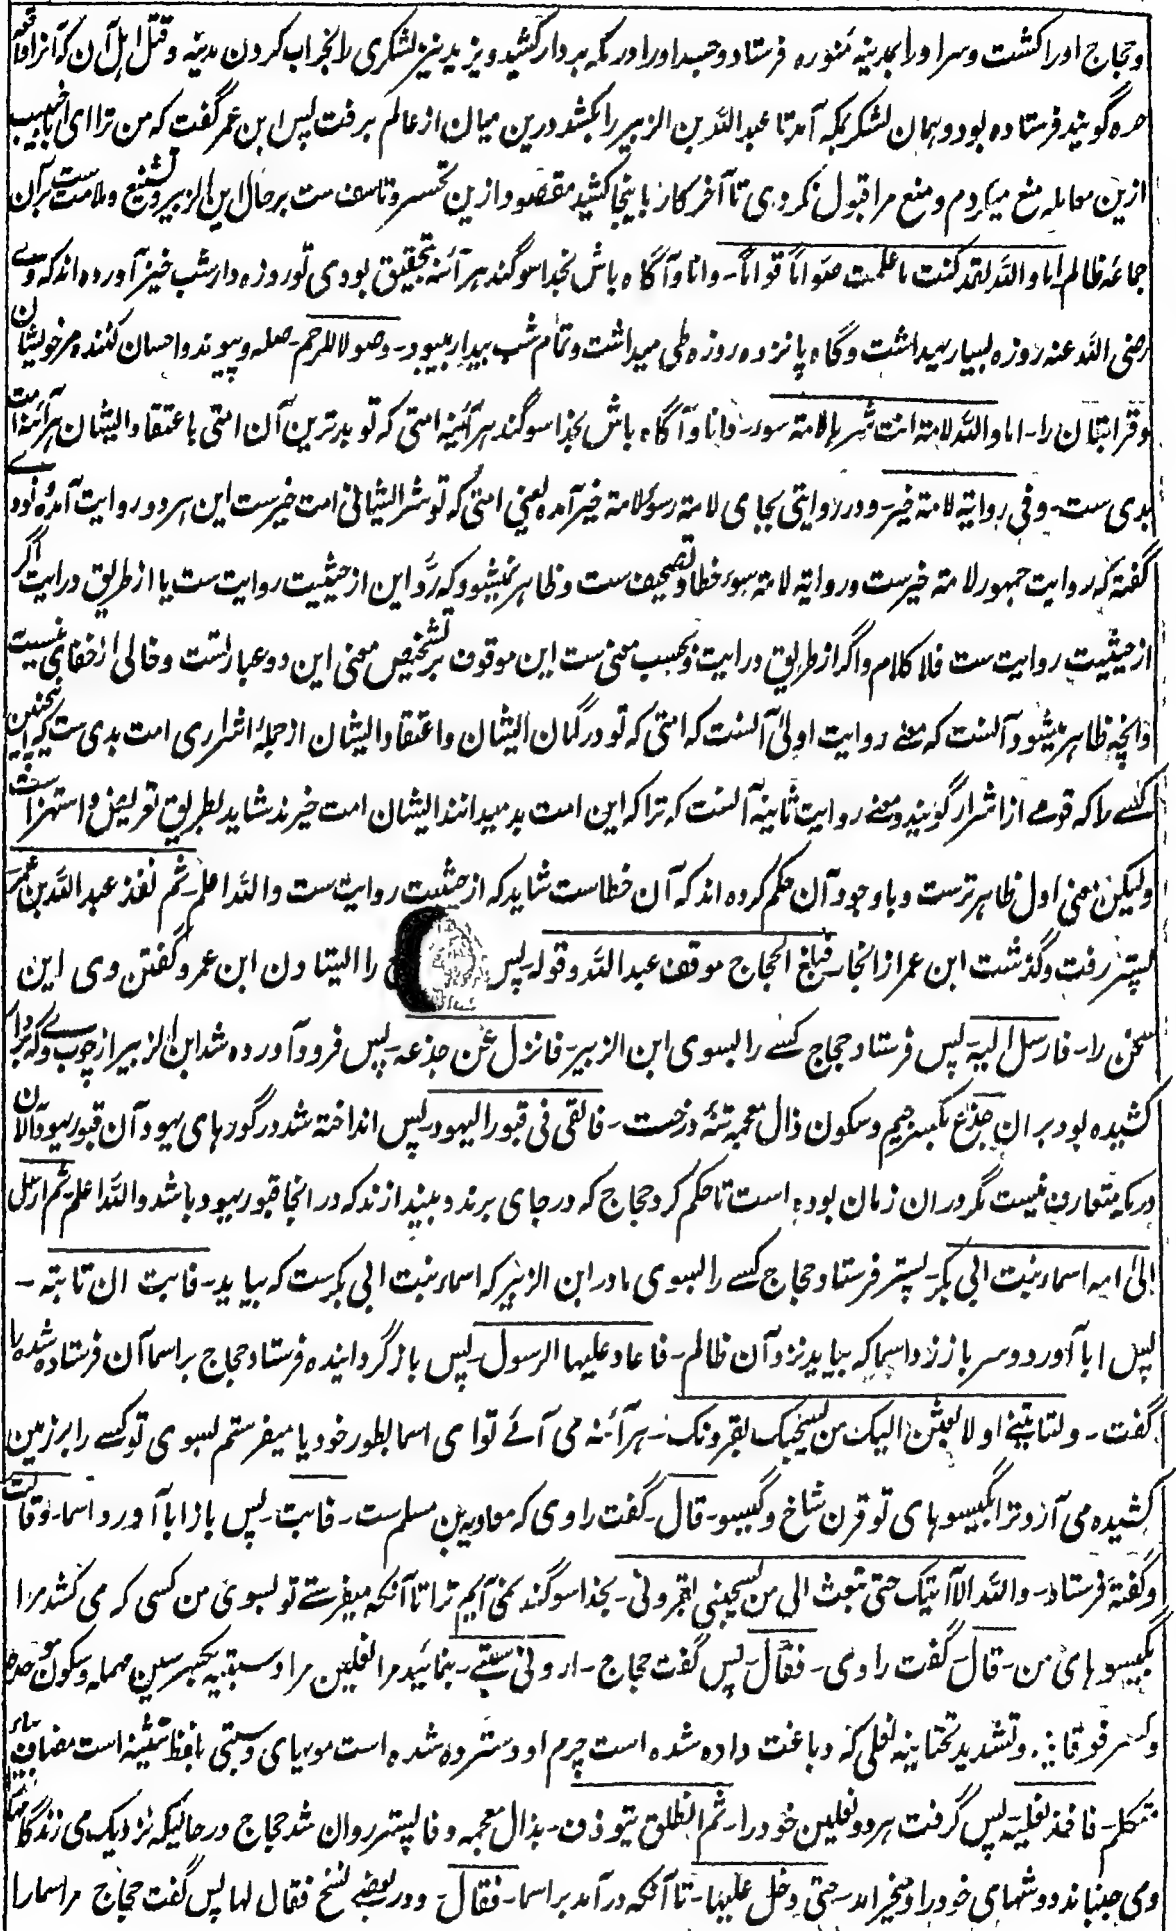 وحجاج اورا کشت و سر او را بمدینه منوره فرستاد و جسد او را در مکه بر دار کشید و یزید نیز لشکری را بخراب کردن مدینه و قتل اهل آن که آنرا واقعه
حره گویند فرستاده بود و همان لشکر بمکه آمد تا عبد الله بن الزبیر را بکشد درین میان از عالم برفت پس ابن عمر گفت که من ترا ای ابا خبیب
ازین معامله منع میکردم و منع مرا قبول نکردی تا آخر کار باینجا کشید مقصود ازین تحسر و تاسف ست بر حال ابن الزبیر و تشنیع و ملامت ست بران
جماعه ظالم اما والله لقد کنت ما علمت صواما قواما - و دانا و آگاه باش بخدا سوگند هر آئنه بتحقیق بودی تو روزه دار شب خیز آورده اند که وی
رضی الله عنه روزه بسیار میداشت و گاه پانزده روزه طی میداشت و تمام شب بیدار میبود - وصولا للرحم - صله و پیوند و احسان کننده مر خویشان
و قرابتان را - اما والله لامة انت شرها لامة سوء - دانا و آگاه باش بخدا سوگند هر آئینه امتی که تو بدترین آن امتی باعتقاد ایشان هر آئنه امت
بدی ست - وفی روایة لامة خیر - و در روایتی بجای لامة سوء لامة خیر آمده یعنی امتی که تو شر ایشانی امت خیر ست این هر دو روایت آمده و نووی
گفته که روایت جمهور لامة خیر ست و روایة لامة سوء خطا و تصحیف ست و ظاهر نمیشود که رد این از حیثیت روایت ست یا از طریق درایت اگر
از حیثیت روایت ست فلا کلام و اگر از طریق درایت و بحسب معنی ست این موقوف بر تشخیص معنی این دو عبارتست و خالی از خفای نیست
و آنچه ظاهر میشود آنست که معنے روایت اولی آنست که امتی که تو در گمان ایشان و اعتقاد ایشان از جمله اشراری امت بدی ست که اینچنین
کسے را که قومے از اشرار گویند و معنے روایت ثانیه آنست که ترا که این امت بد میدانند ایشان امت خیرند شاید بطریق تعریض و استهزا ست
و لیکن معنی اول ظاهر ترست و باوجود آن حکم کرده اند که آن خطاست شاید که از حیثیت روایت ست والله اعلم - ثم نفذ عبد الله بن عمر
پستر رفت و گذشت ابن عمر از انجا - فبلغ الحجاج موقف عبد الله وقوله - پس را ایستادن ابن عمر و گفتن وی این
سخن را - فارسل الیه - پس فرستاد حجاج کسے را بسوی ابن الزبیر - فانزل عن جذعه - پس فرود آورده شد ابن الزبیر از چوبے که بر دار
کشیده بود بر ان جذع بکسر جیم و سکون ذال معجمه تنه درخت - فالقی فی قبور الیهود - پس انداخته شد در گورهای یهود آن قبور یهود الآن
در مکه متعارف نیست مگر در ان زمان بوده است تا حکم کرد حجاج که در جای برند و بیندازند که در انجا قبور یهود باشد والله اعلم - ثم ارسل
الی امه اسماء بنت ابی بکر - پستر فرستاد حجاج کسے را بسوی مادر ابن الزبیر که اسماء بنت ابی بکر ست که بیاید - فابت ان تاتیه -
پس ابا آورد و سر باز زد اسما که بیاید نزد آن ظالم - فاعاد علیها الرسول - پس باز گردانیده فرستاد حجاج بر اسما آن فرستاده شده را
گفت - ولتاتینی او لابعثن الیک من یسحبک بقرونک - هر آئنه می آئے تو ای اسما بطور خود یا میفرستم بسوی تو کسے را بر زمین
کشیده می آرد و ترا بگیسوهای تو قرن شاخ و گیسو - قال - گفت راوی که معاویه بن مسلم ست - فابت - پس باز ابا آورد اسما - وقالت
و گفته فرستاد - والله لا آتیک حتی تبعث الی من یسحبنی بقرونی - بخدا سوگند نمی آیم ترا تا آنکه میفرستے تو بسوی من کسی که می کشد مرا
بگیسوهای من - قال - گفت راوی - فقال - پس گفت حجاج - ارونی سبتے - بنمائید مرا نعلین مرا و سبتیه بکسر سین مهمله و سکون موحده
و کسر فوقانیه و تشدید تحتانیه نعلی که دباغت داده شده است چرم او و سترده شده است موهای و سبتی بلفظ تثنیه است مضاف بیای
متکلم - فاخذ نعلیه - پس گرفت هر دو نعلین خود را - ثم انطلق یتوذف - بذال معجمه و فا پستر روان شد حجاج در حالیکه نزدیک می زند گامها
و می جنباند دوشهای خود را و میخرامد - حتی دخل علیها - تا آنکه در آمد بر اسما - فقال - و در بعضے نسخ فقال لها پس گفت حجاج مر اسما را